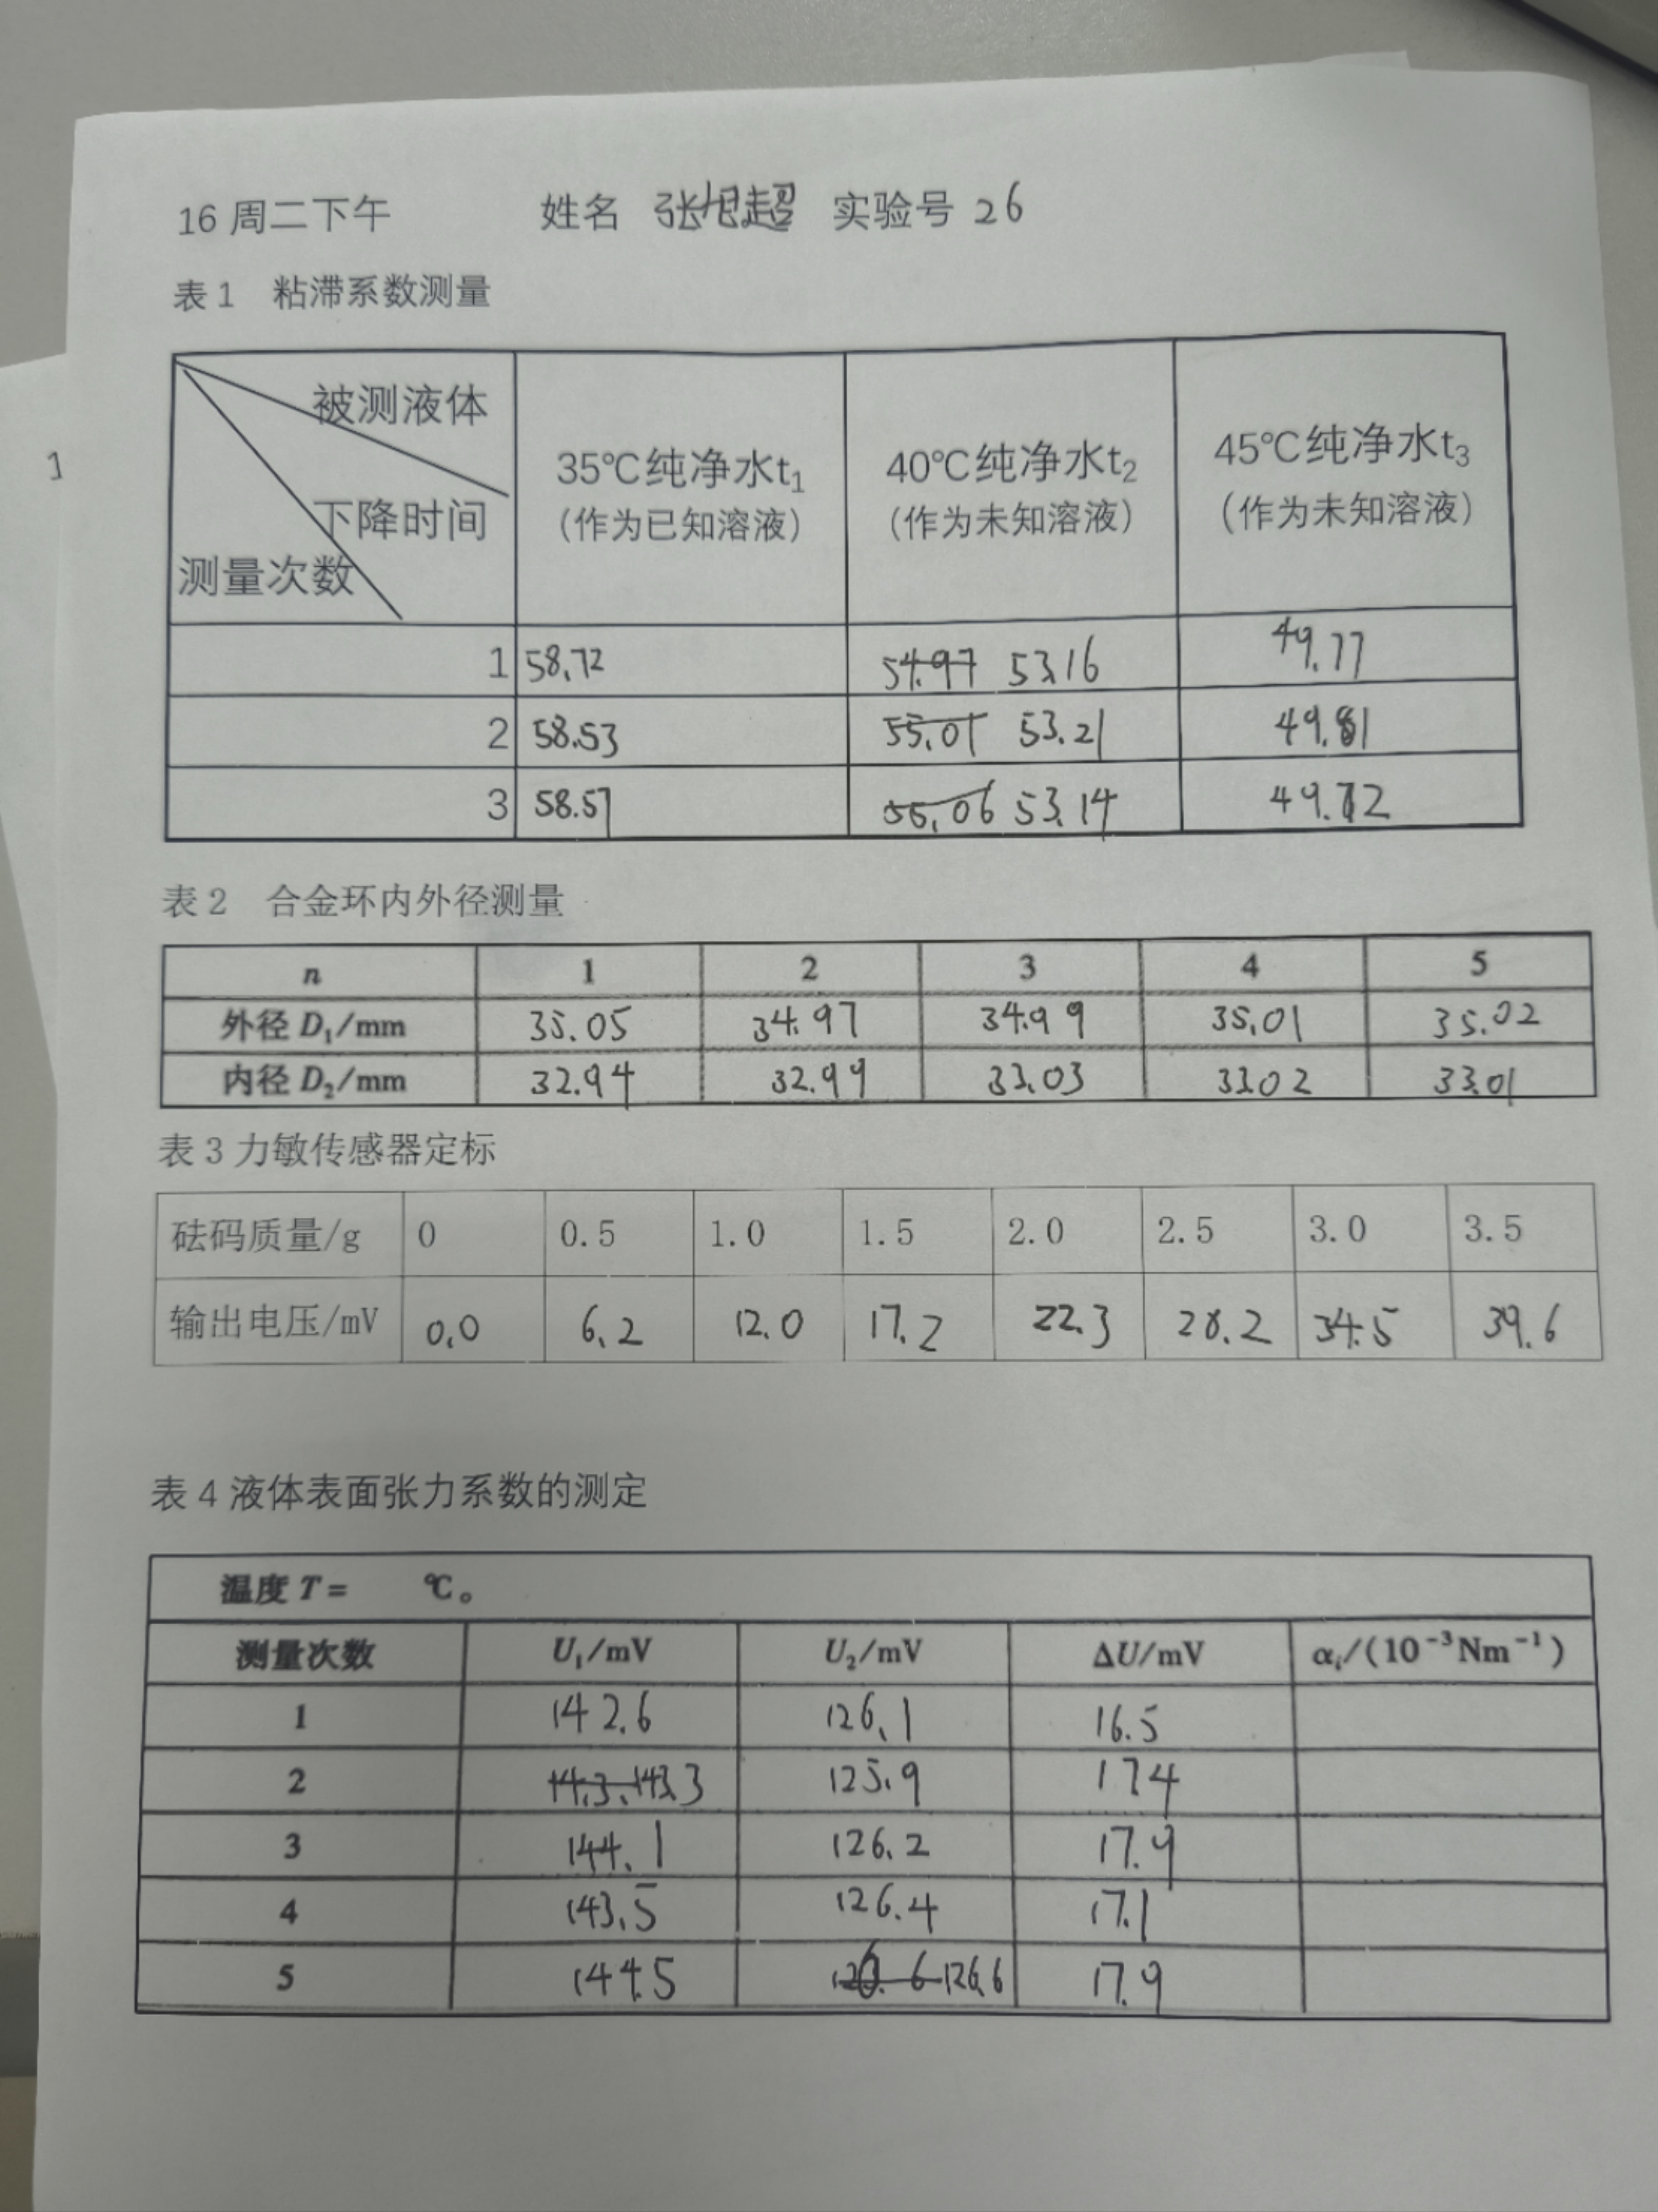 16 周二下午 姓名 张旭超 实验号 26
表 1 粘滞系数测量
被测液体
下降时间
测量次数
35℃纯净水t₁
（作为已知溶液）
40℃纯净水t₂
（作为未知溶液）
45℃纯净水t₃
（作为未知溶液）
1 58.72 54.97 53.16 49.77
2 58.53 55.01 53.21 49.81
3 58.57 55.06 53.14 49.72
表 2 合金环内外径测量
n 1 2 3 4 5
外径 D₁/mm 35.05 34.97 34.99 35.01 35.02
内径 D₂/mm 32.94 32.99 33.03 33.02 33.01
表 3 力敏传感器定标
砝码质量/g 0 0.5 1.0 1.5 2.0 2.5 3.0 3.5
输出电压/mV 0.0 6.2 12.0 17.2 22.3 28.2 34.5 39.6
表 4 液体表面张力系数的测定
温度 T = ℃。
测量次数 U₁/mV U₂/mV ΔU/mV αᵢ/(10⁻³Nm⁻¹)
1 142.6 126.1 16.5
2 143.3 125.9 17.4
3 144.1 126.2 17.9
4 143.5 126.4 17.1
5 144.5 126.6 17.9
1